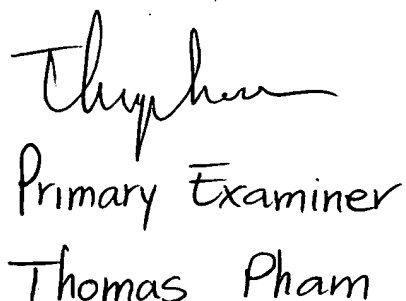 Primary Examiner
Thomas Pham